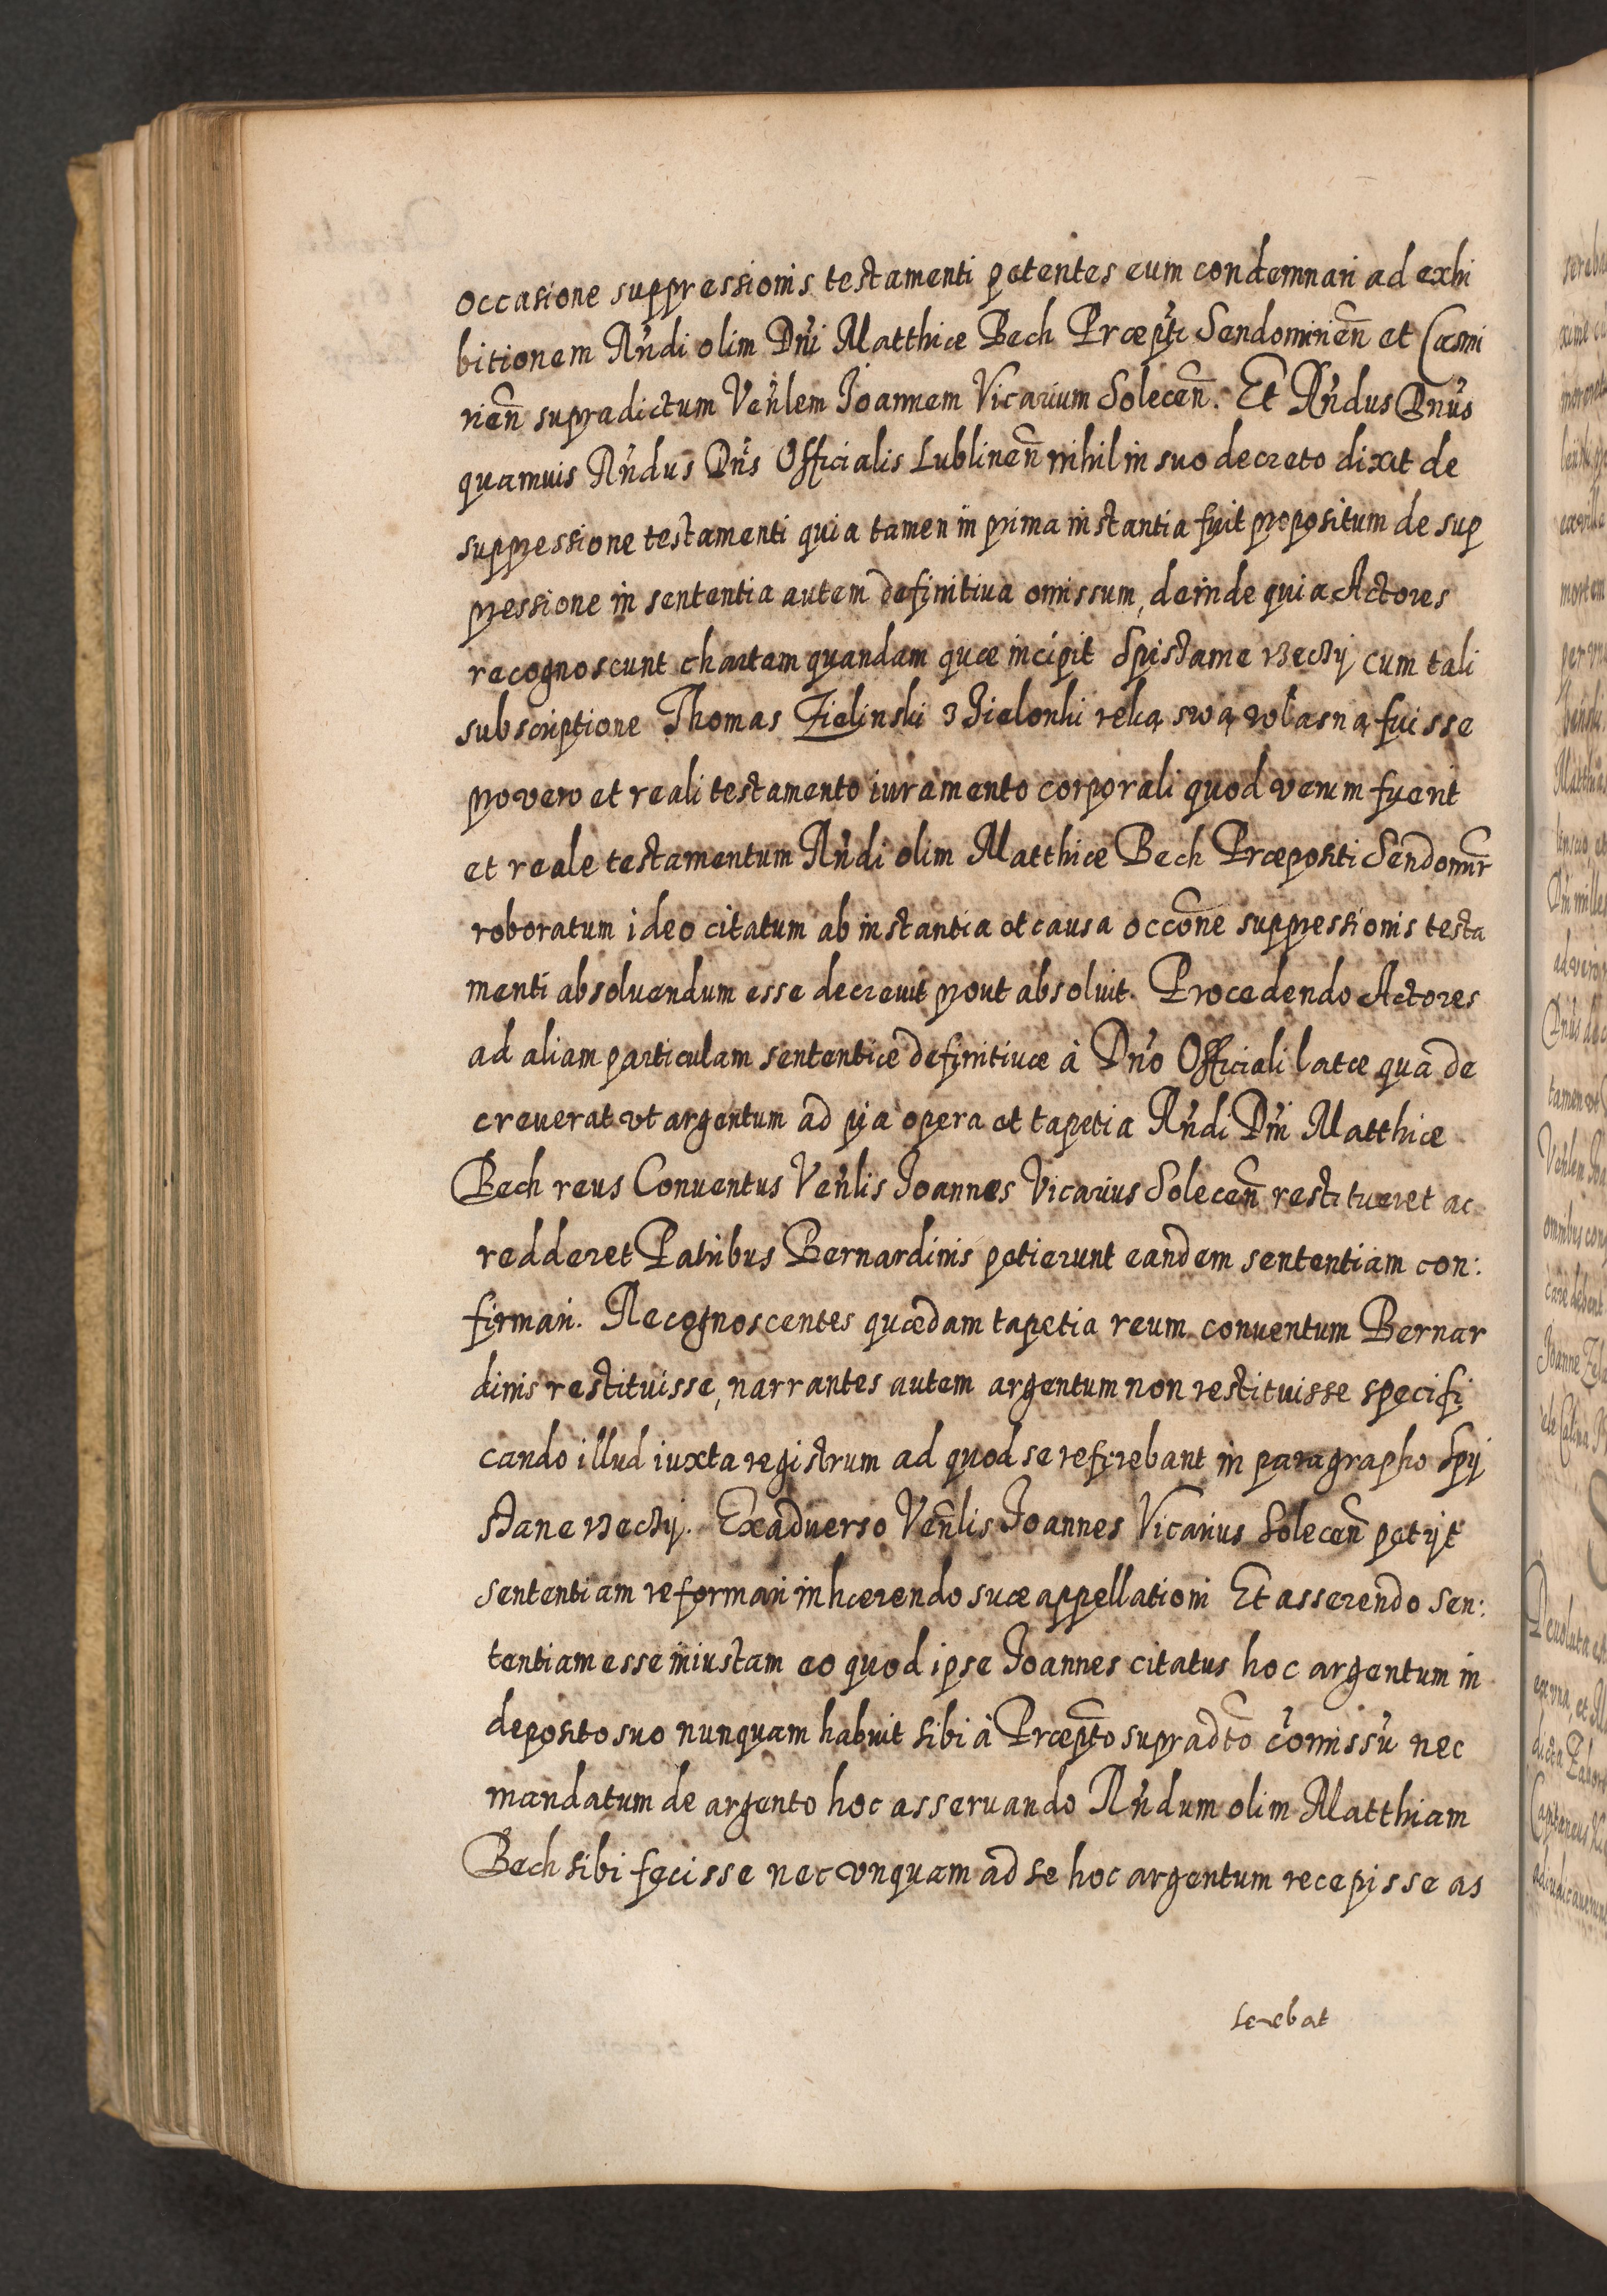 occasione suppressionis testamenti petentes eum condemnari ad exhi
bitionem Rndi olim Dni Matthiæ Bech Præpti Sendomirien et Casmi
rien supradictum Venlem Joannem Vicarium Solecen. Et Rndus Dnus
quamuis Rndus Dns Officialis Lublinen nihil in suo decreto dixit de
suppressione testamenti quia tamen in prima instantia fuit propositum de sup
pressione in sententia autem definitiua omissum, deinde quia Actores
recognoscunt chartam quandam quæ incipit Spistame rzeczy cum tali
subscriptione Thomas Zielinski z Zielonki ręką swą własną fuisse
pro vero et reali testamento iuramento corporali quod verum fuerit
et reale testamentum Rndi olim Matthiæ Bech Præpositi Sendomir
roboratum ideo citatum ab instantia et causa occone suppressionis testa
menti absoluendum esse decreuit prout absoluit. Procedendo Actores
ad aliam particulam sententiæ definitiuæ à Dno Officiali latæ qua de
creuerat vt argentum ad pia opera et tapetia Rndi Dni Matthiæ
Bech reus Conuentus Venlis Joannes Vicarius Solecen restitueret ac
redderet Patribus Bernardinis petierunt eandem sententiam con:
firmari. Recognoscentes quædam tapetia reum conuentum Bernar
dinis restituisse, narrantes autem argentum non restituisse specifi
cando illud iuxta registrum ad quod se referebant in paragrapho Spij
stane rzeczy. Ex aduerso Venlis Joannes Vicarius Solecen petijt
sententiam reformari inhærendo suæ appellationi Et asserendo sen:
tentiam esse iniustam eo quod ipse Joannes citatus hoc argentum in
deposito suo nunquam habuit sibi à Præpto supradto comissu nec
mandatum de argento hoc asseruando Rndum olim Matthiam
Bech sibi fecisse nec vnquam ad se hoc argentum recepisse as
serebat